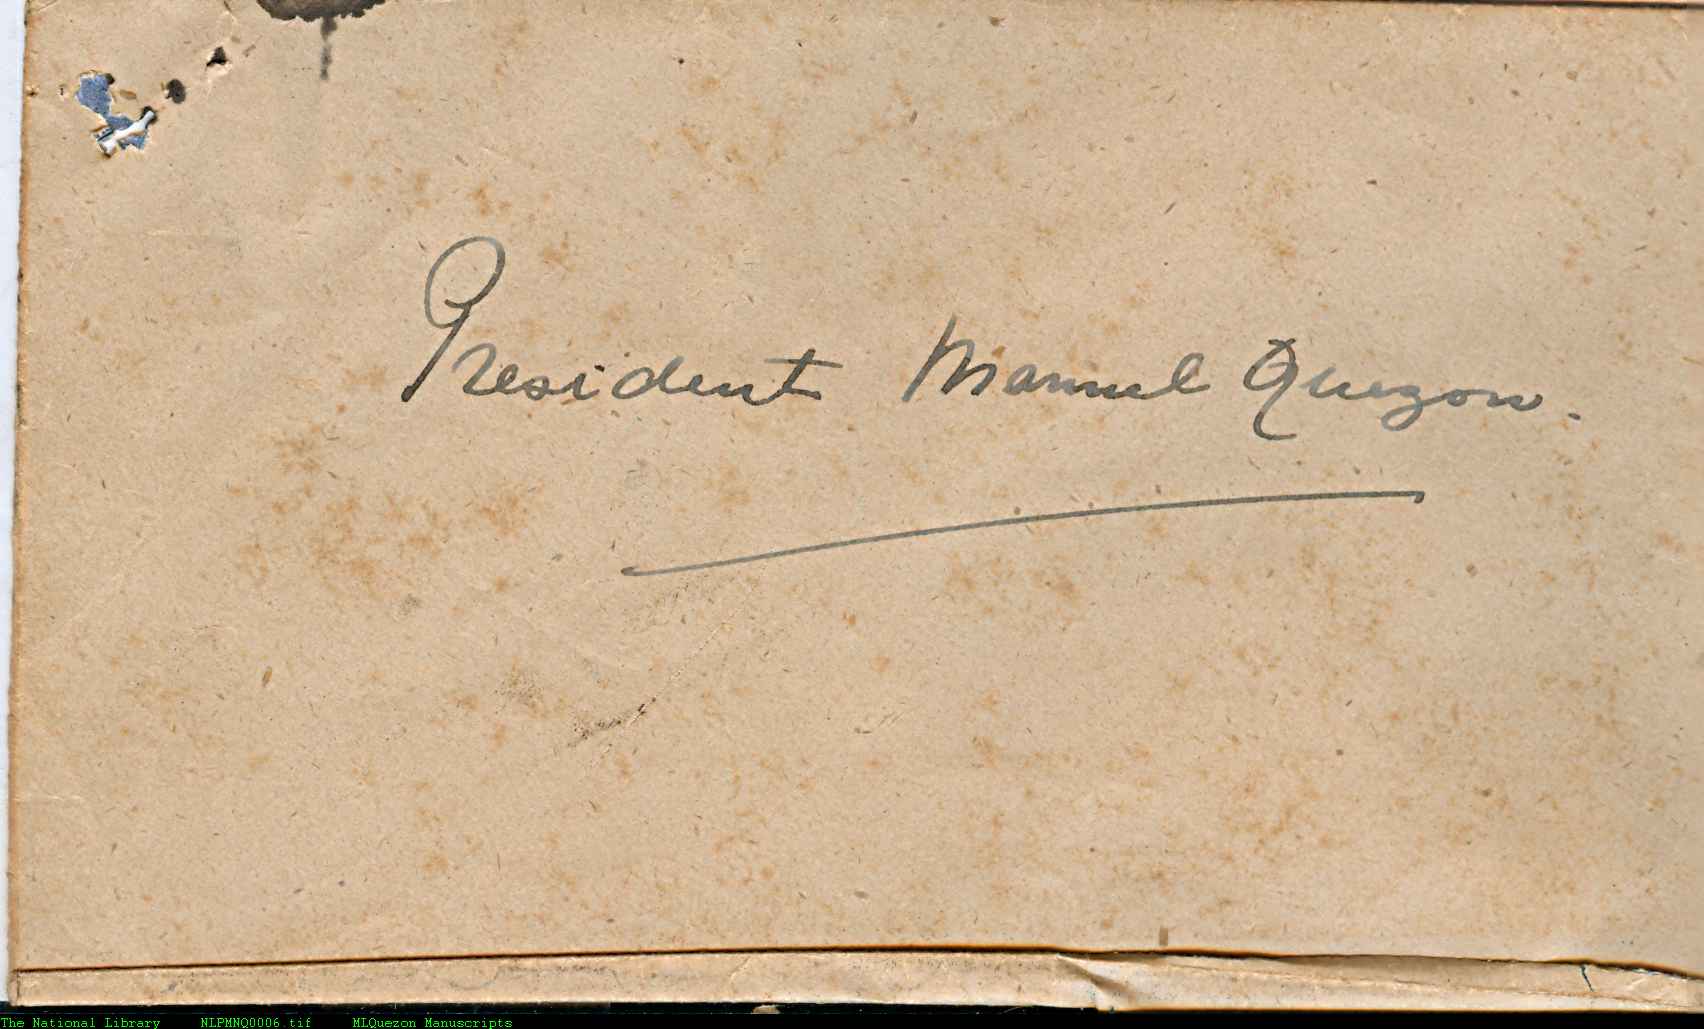 President Manuel Quezon.
The National Library NLPMNQ0006.tif MLQuezon Manuscripts